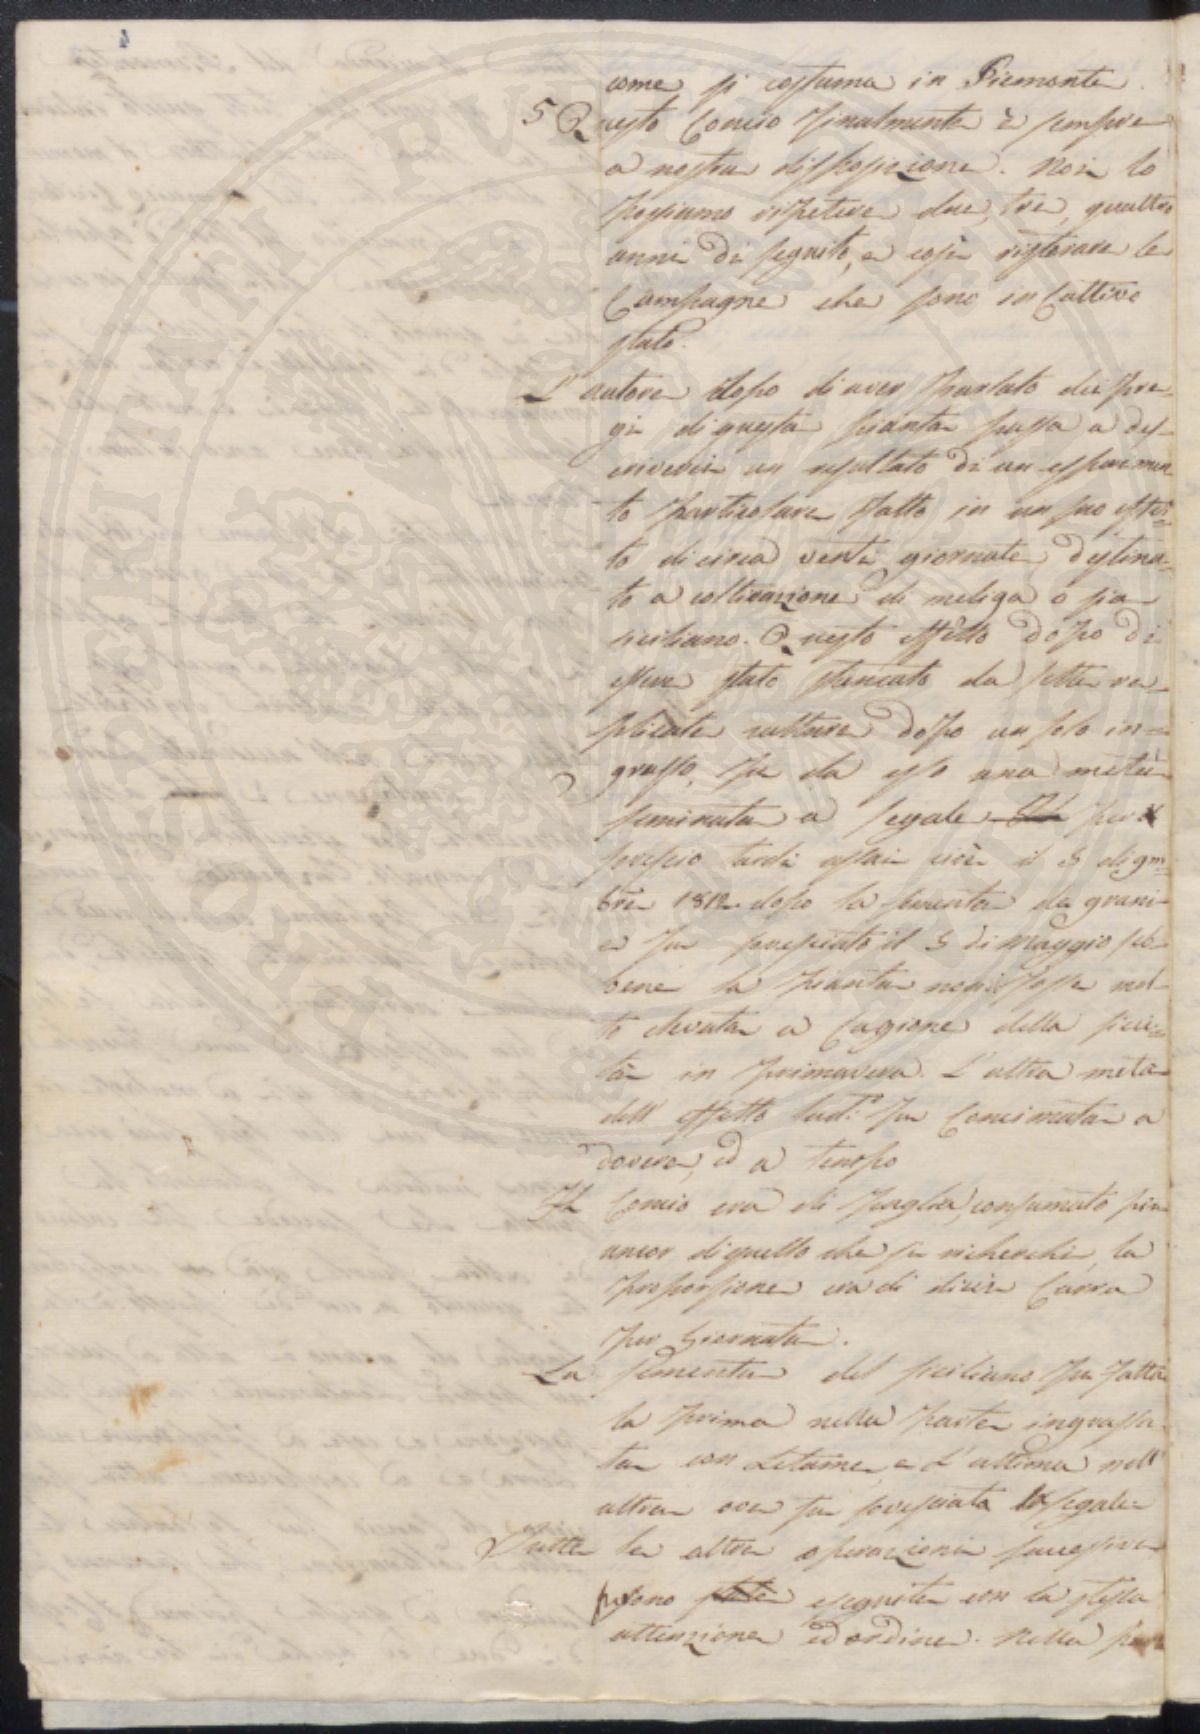 come si costuma in Piemonte.
5 Questo Concio finalmente è sempre
a nostra disposizione. Noi lo
possiamo ripetere due, tre, quattro
anni di seguito, e così ristorare le
Campagne che sono in Cattivo
stato.
L'autore dopo di aver parlato dei pre-
gi di questa pianta passa a des-
criverci un resultato di un esperimen-
to particolare fatto in un suo effet-
to di circa venti giornate destina-
to a coltivazione di meliga o sia
siciliano. Questo effetto dopo di
essere stato stancato da sette re-
plicate culture dopo un solo in-
grasso, fu da esso una metà
seminata a segale però
sovescio tardi assai cioè il 3 di 9m-
bre 1812 dopo la sementa de grani
e fu sovesciato il 3 di Maggio seb-
bene la pianta non fosse mol-
to elevata a Cagione della sicci-
tà in primavera. L'altra metà
dell' effetto sud.º fu Concimata a
dovere, ed a tempo
Il Concio era di paglia, consumato più
ancor di quello che si richerchi, la
proporsione era di dieci Carra
per Giornata.
La sementa del siciliano fu fatta
la prima nella parte ingrassa-
ta con Letame, e l'ultima nell'
altra ove fu sovesciata la segale
Tutte le altre operazioni successive
furono state eseguite con la stessa
attenzione ed ordine. Nella par
4
PVBLI